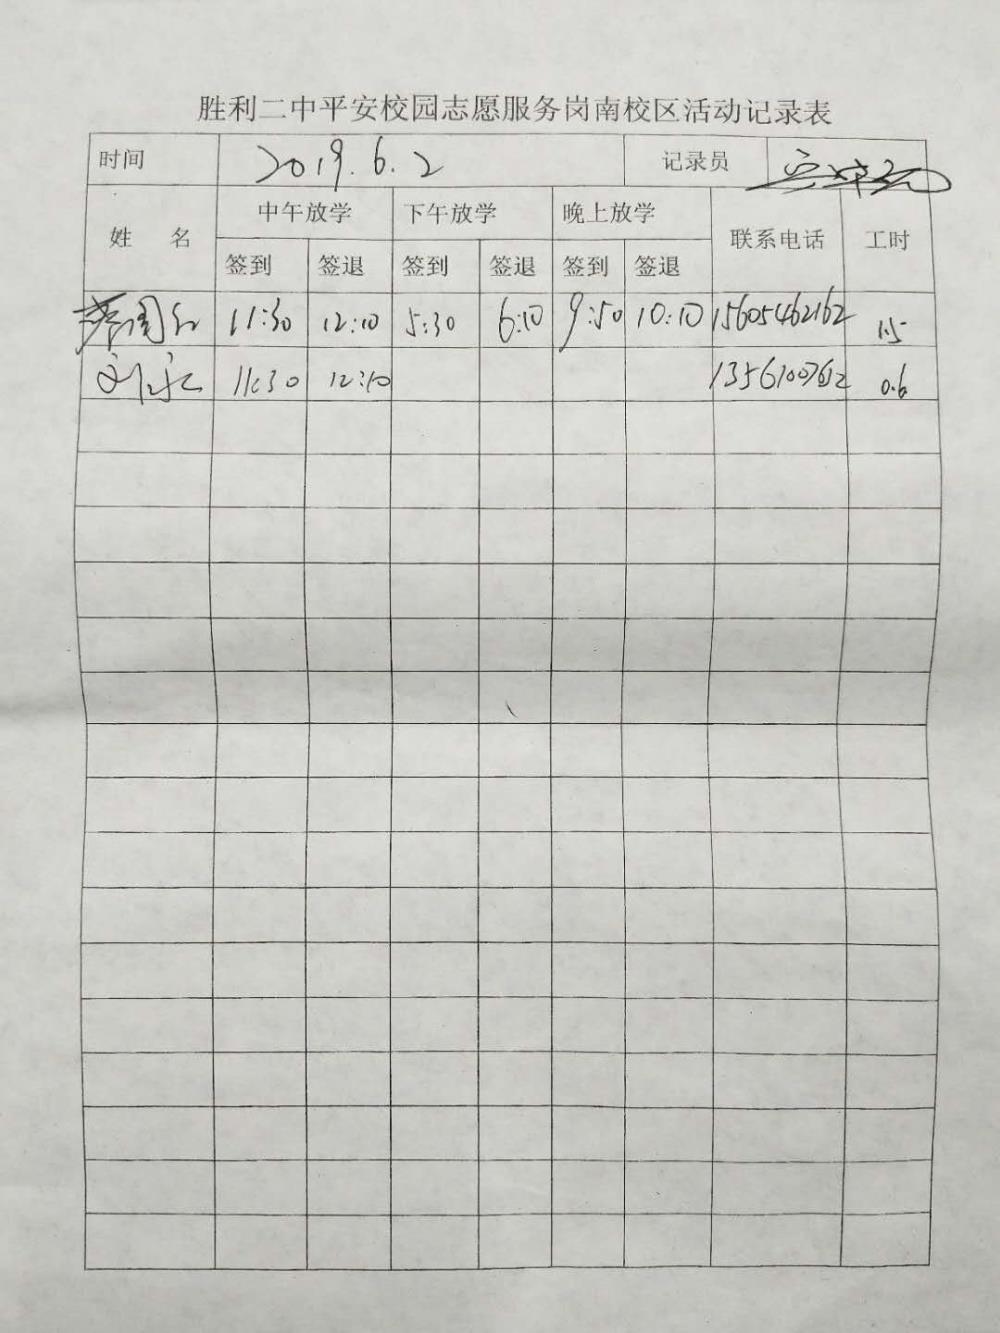 胜利二中平安校园志愿服务岗南校区活动记录表
时间 2019.6.2 记录员
姓 名 中午放学 下午放学 晚上放学 联系电话 工时
签到 签退 签到 签退 签到 签退
11:30 12:10 5:30 6:10 9:50 10:10 15605462162 1.5
11:30 12:10 0.6